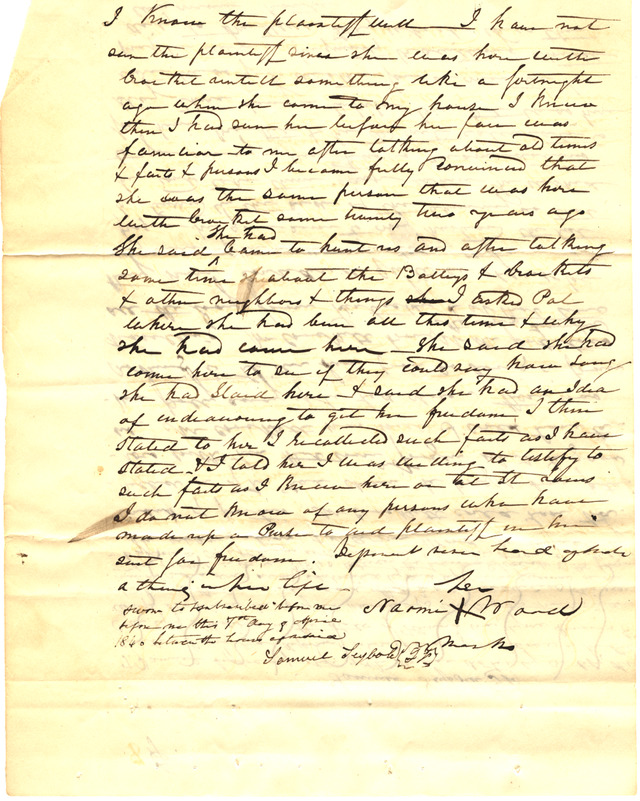 I Know the plaintiff well — I have not
seen the plaintiff since she was here with
Crocket untill something like a fortnight
ago when she come to my house I Knew
then I had seen her before her face was
familiar to me after talking about old times
& facts & persons I became fully convinced that
she was the same person that was here
with Crocket some twenty two years ago
She said she had Came to hunt us and after talking
some time about the Batteys & Crockets
& other neighbors & things I asked Pol
where she had been all this time & why
she had come here — She said she had
come here to see if they could say how long
she had Staid here & said she had an Idea
of endeavouring to get her freedom I then
stated to her I Recollected such facts as I have
stated & I told her I was willing to testify to
such facts as I Knew here or at St Louis
I do not Know of any persons who have
made up a Purse to aid plaintiff in her
suit for freedom. Deponent never heard of such
a thing in her life —
her
Naomi X Ward
mark
sworn to & subscribed before me
before me this 7th day of April
1840 between the hours aforesaid
Samuel Seybold J P